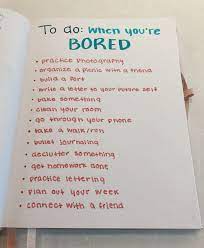 To do: When you're
BORED
• practice photography
• organize a picnic with a friend
• build a fort
• write a letter to your future self
• bake something
• clean your room
• go through your phone
• take a walk/run
• bullet journaling
• declutter something
• get homework done
• practice lettering
• plan out your week
• connect with a friend